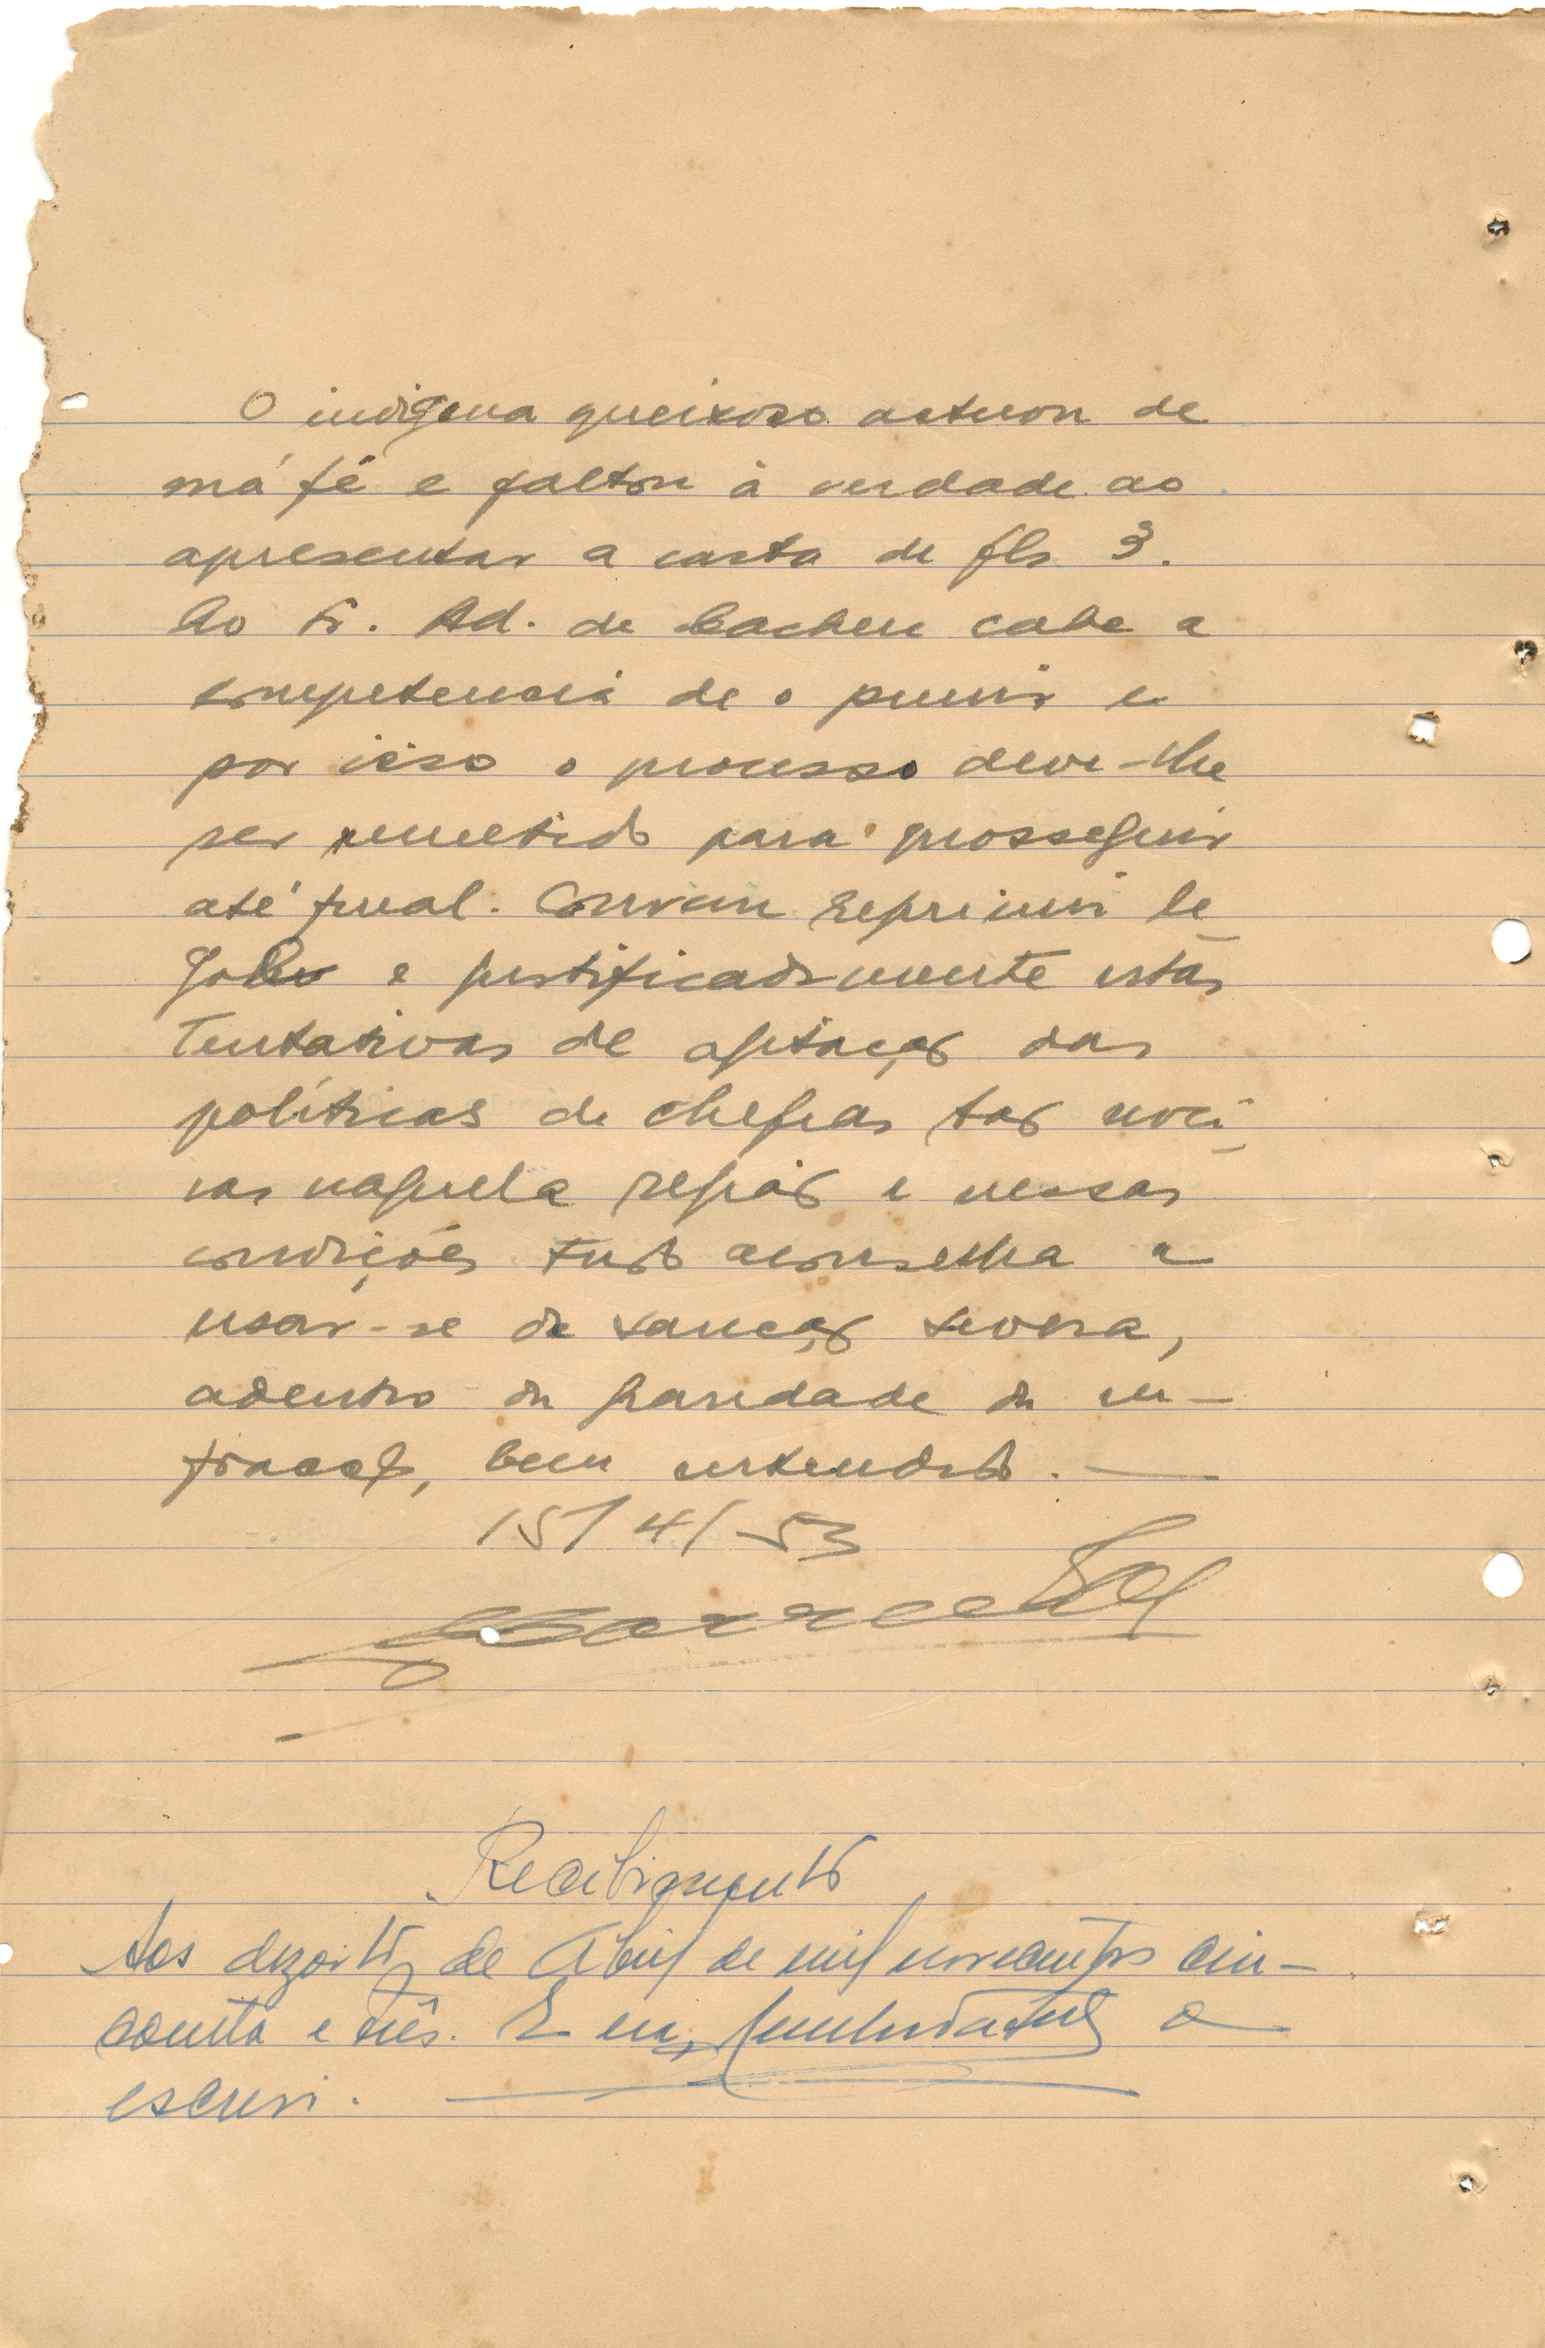 O indígena queixoso actuou de
má fé e faltou à verdade ao
apresentar a carta de fls 3.
Ao Sr. Ad. de Cacheu cabe a
competencia de o punir e
por isso o processo deve-lhe
ser remetido para prosseguir
até final. Convem reprimir le
gal e justificadamente estas
tentativas de agitação das
políticas de chefias tão noci
vas naquela região e nessas
condições tudo aconselha a
usar-se de sanção severa,
adentro da gravidade da in-
fracção, bem entendido.
15/4/53
Recebimento
Aos dezoito de Abril de mil novecentos cin-
coenta e três. E eu, o
escrevi.